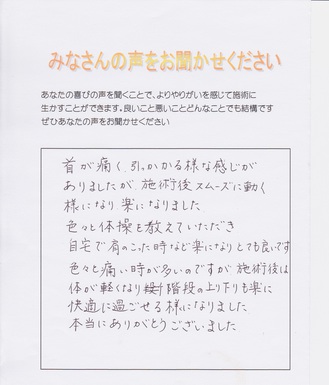 みなさんの声をお聞かせください
あなたの喜びの声を聞くことで、よりやりがいを感じて施術に
生かすことができます。良いこと悪いことどんなことでも結構です
ぜひあなたの声をお聞かせください
首が痛く、引っかかる様な感じが
ありましたが、施術後スムーズに動く
様になり楽になりました
色々と体操を教えていただき
自宅で肩のこった時など楽になりとても良いです
色々と痛い時が多いのですが施術後は
体が軽くなり階段の上り下りも楽に
快適に過ごせる様になりました
本当にありがとうございました